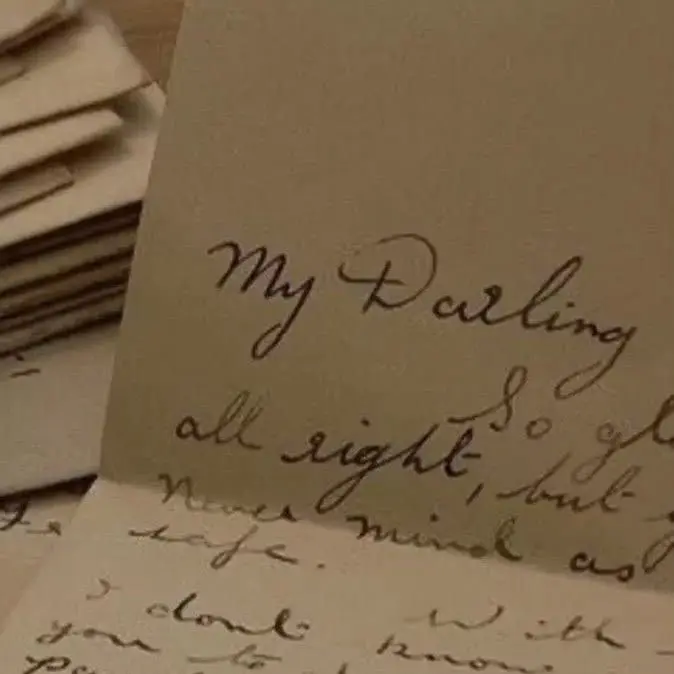 My Darling
So
all right, but
Never mind as
safe.
I don't With
you to know